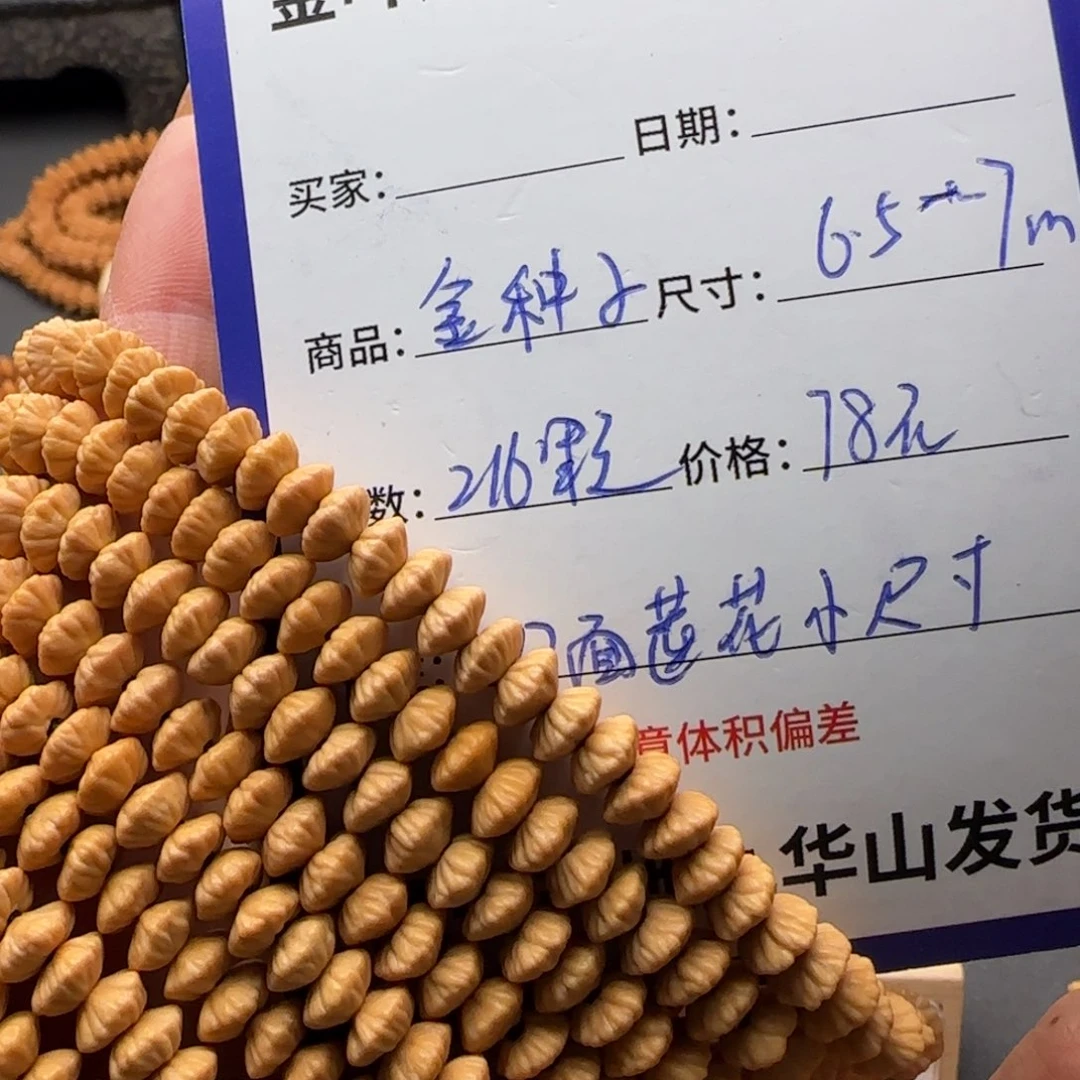 买家: 日期:
商品: 金种子 尺寸: 6.5-7m
数: 216颗 价格: 78元
面莲花小尺寸
意体积偏差
华山发货